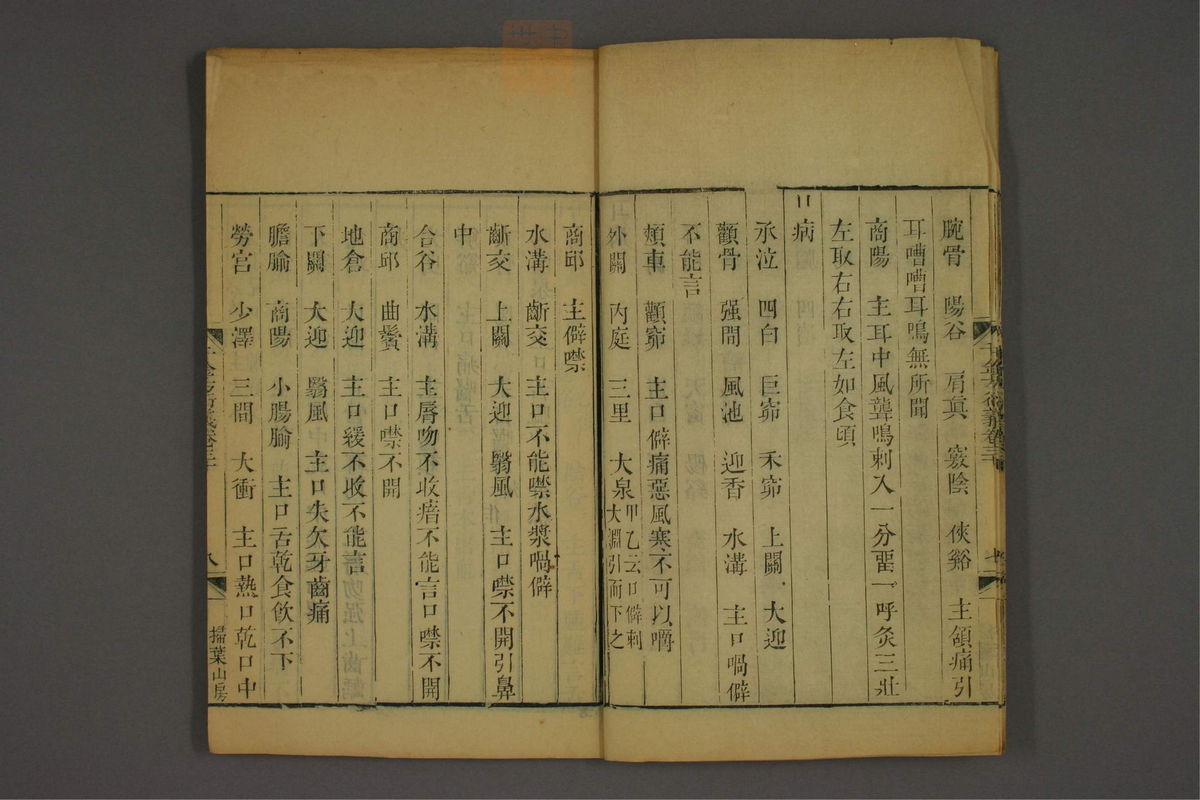 腕骨　陽谷　肩真　竅陰　俠谿　主頷痛引
耳嘈嘈耳鳴無所聞
商陽　主耳中風聾鳴刺入一分留一呼灸三壯
左取右右取左如食頃
口病
承泣　四白　巨窌　禾窌　上關　大迎
顴骨　强間　風池　迎香　水溝　主口喎僻
不能言
頰車　顴窌　主口僻痛惡風寒不可以嚼
外關　內庭　三里　大泉甲乙云口僻刺
大淵引而下之
商邱　主僻噤
水溝　齗交　主口不能噤水漿喎僻
齗交　上關　大迎　翳風　主口噤不開引鼻
中
合谷　水溝　主脣吻不收瘖不能言口噤不開
商邱　曲鬢　主口噤不開
地倉　大迎　主口緩不收不能言
下關　大迎　翳風　主口失欠牙齒痛
膽腧　商陽　小腸腧　主口舌乾食飲不下
勞宮　少澤　三間　大衝　主口熱口乾口中
千金方衍義卷三十
八
掃葉山房